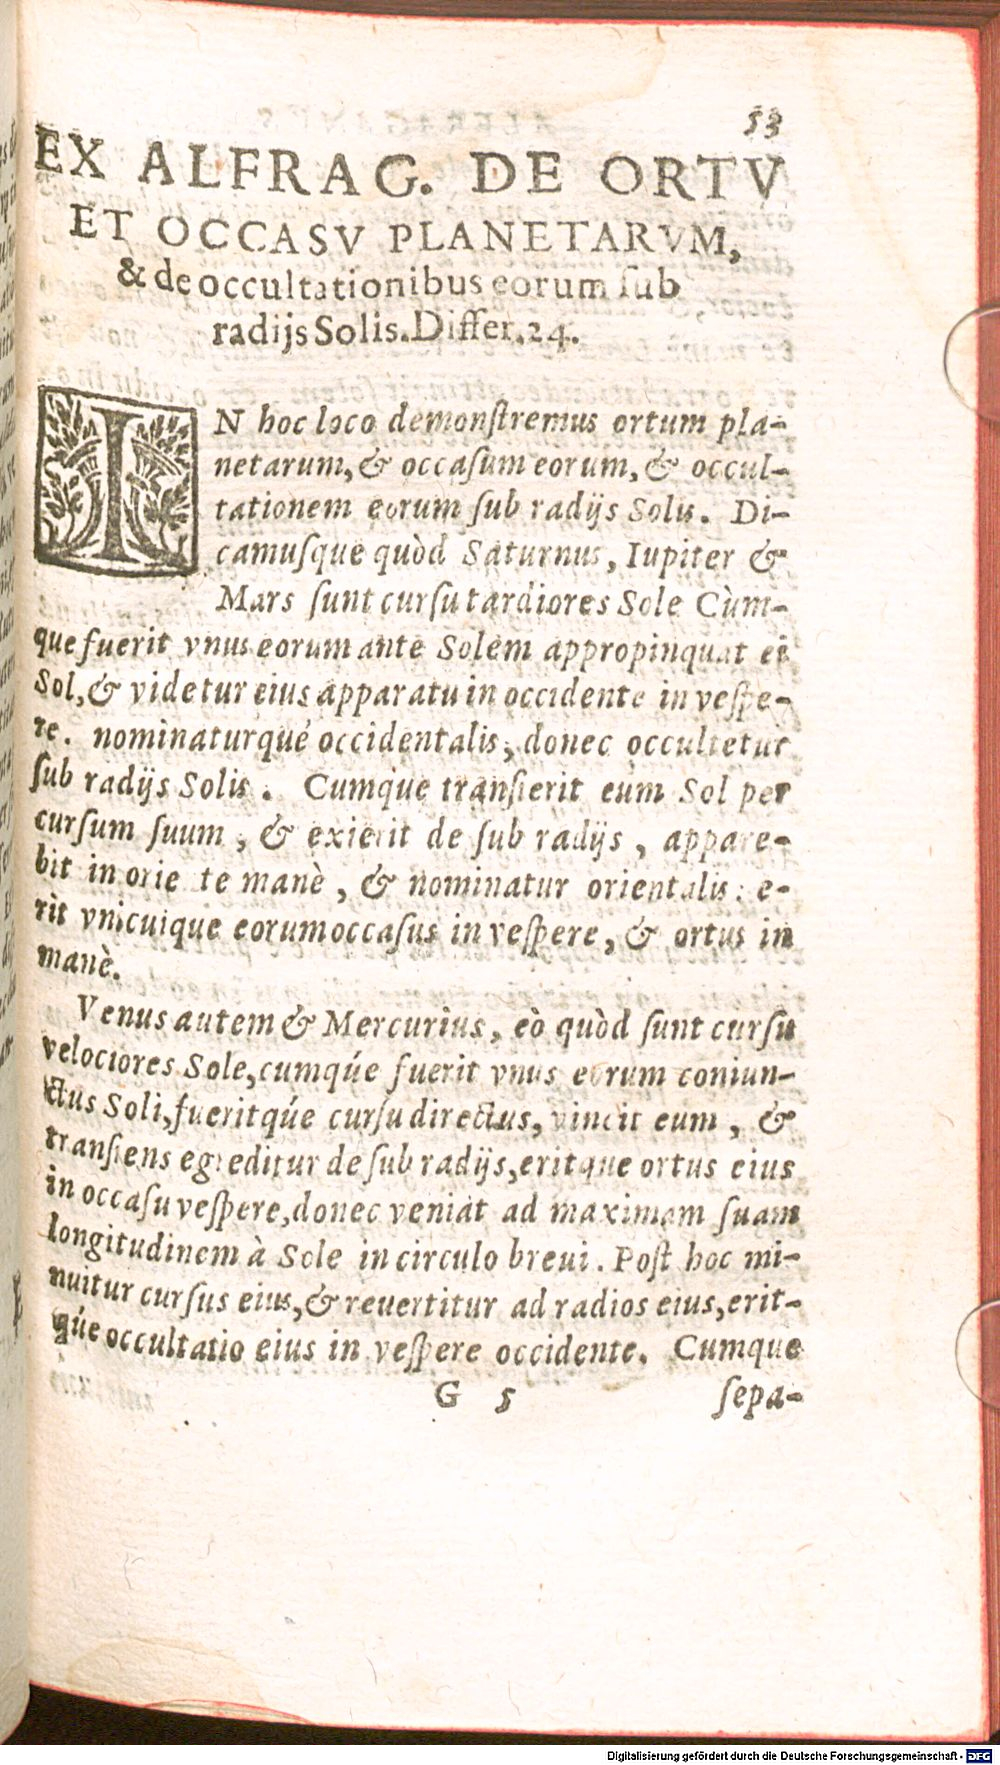 53
EX ALFRAG. DE ORTV
ET OCCASV PLANETARVM,
& de occultationibus eorum ſub
radijs Solis. Differ. 24.
IN hoc loco demonſtremus ortum pla-
netarum, & occaſum eorum, & occul-
tationem eorum ſub radijs Solis. Di-
camuſque quòd Saturnus, Iupiter &
Mars ſunt curſu tardiores Sole Cùm-
que fuerit vnus eorum ante Solem appropinquat ei
Sol, & videtur eius apparatu in occidente in veſpe-
re. nominaturqué occidentalis, donec occultetur
ſub radijs Solis. Cumque tranſierit eum Sol per
curſum ſuum, & exierit de ſub radijs, appare-
bit in orie te manè, & nominatur orientalis: e-
rit vnicuique eorum occaſus in veſpere, & ortus in
manè.
Venus autem & Mercurius, eò quòd ſunt curſu
velociores Sole, cumqúe fuerit vnus eorum coniun-
ctus Soli, fueritqúe curſu directus, vincit eum, &
tranſiens egreditur de ſub radijs, eritque ortus eius
in occaſu veſpere, donec veniat ad maximam ſuam
longitudinem à Sole in circulo breui. Poſt hoc mi-
nuitur curſus eius, & reuertitur ad radios eius, erit-
qúe occultatio eius in veſpere occidente. Cumque
G 5 ſepa-
Digitalisierung gefördert durch die Deutsche Forschungsgemeinschaft - DFG